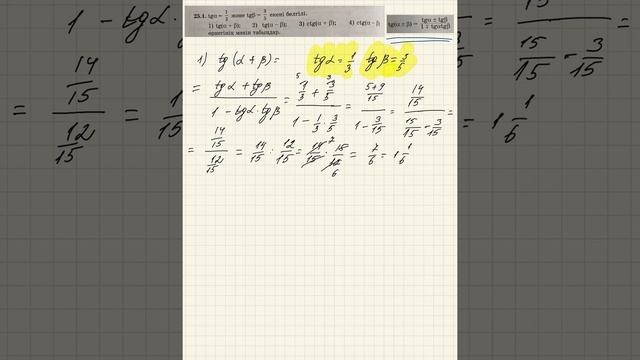 25.4. tgα = 1/3 және tgβ = 3/5 екені белгілі.
1) tg(α + β); 2) tg(α − β); 3) ctg(α + β); 4) ctg(α − β)
өрнегінің мәнін табыңдар.
tg(α ± β) = (tgα ± tgβ)/(1 ∓ tgα tgβ)
1) tg(α + β) = tgα = 1/3 tgβ = 3/5
= (tgα + tgβ)/(1 − tgα · tgβ) = (1/3 + 3/5)/(1 − 1/3 · 3/5) = ((5+9)/15)/(1 − 3/15) = (14/15)/(15/15 − 3/15) =
= (14/15)/(12/15) = 14/15 : 12/15 = 14/15 · 15/12 = 7/6 = 1 1/6